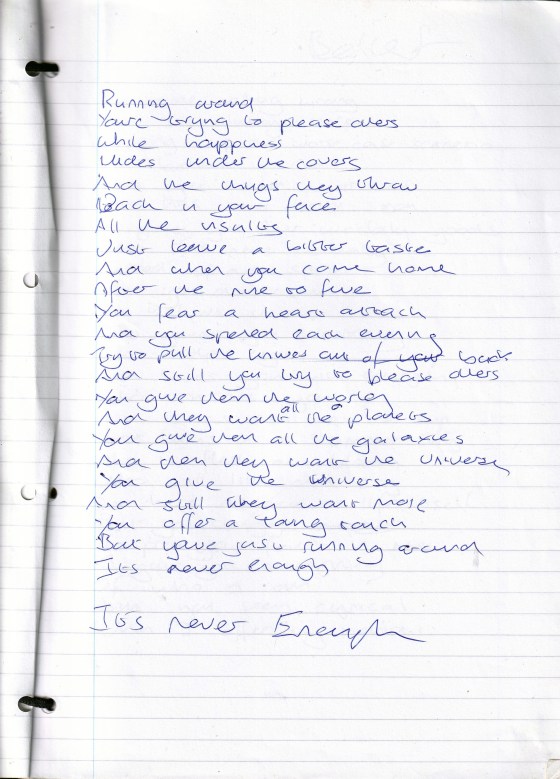 Running around
You're trying to please others
While happiness
hides under the covers
And the things they throw
Back in your face
All the insults
Just leave a bitter taste
And when you come home
After the nine to five
You fear a heart attack
And you spend each evening
Try to pull the knives out of your back
And still you try to please others
You give them the world
And they want all the planets
You give them all the galaxies
And then they want the universe
You give the universe
And still they want more
You offer a touch
But you're just running around
Its never enough
Its never Enough